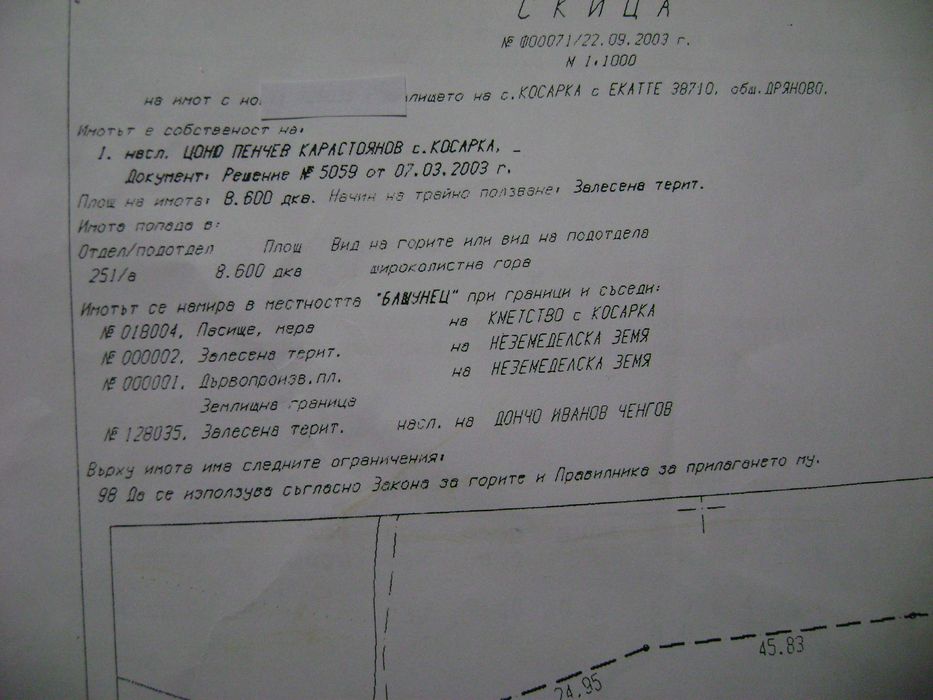 СКИЦА
№ Ф00071/22.09.2003 г.
М 1:1000
на имот с но. лището на с.КОСАРКА с ЕКАТТЕ 38710, общ.ДРЯНОВО.
Имотът е собственост на:
1. насл. ЦОНЮ ПЕНЧЕВ КАРАСТОЯНОВ с.КОСАРКА, _
Документ: Решение № 5059 от 07.03.2003 г.
Площ на имота: 8.600 дка. Начин на трайно ползване: Залесена терит.
Имота попада в:
Отдел/подотдел Площ Вид на горите или вид на подотдела
251/а 8.600 дка широколистна гора
Имотът се намира в местността "БАШУНЕЦ" при граници и съседи:
№ 018004, Пасище, мера на КМЕТСТВО с КОСАРКА
№ 000002, Залесена терит. на НЕЗЕМЕДЕЛСКА ЗЕМЯ
№ 000001, Дървопроизв.пл. на НЕЗЕМЕДЕЛСКА ЗЕМЯ
Землищна граница
№ 128035, Залесена терит. насл. на ДОНЧО ИВАНОВ ЧЕНГОВ
Върху имота има следните ограничения:
98 Да се използува съгласно Закона за горите и Правилника за прилагането му.
45.83
24.95